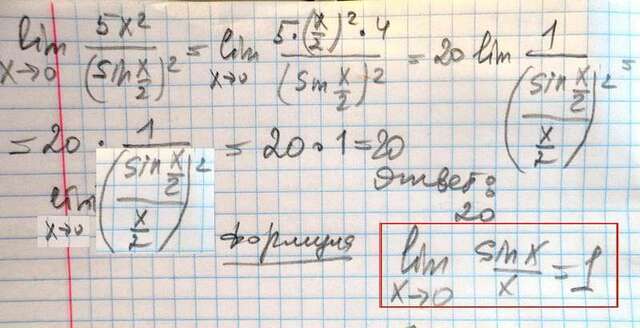 lim x→0 5x²/(sin x/2)² = lim x→0 5·(x/2)²·4/(sin x/2)² = 20 lim 1/((sin x/2)/(x/2))² =
= 20 · 1/(lim x→0 ((sin x/2)/(x/2))²) = 20·1=20
Ответ:
20
формула
lim x→0 sin x/x = 1